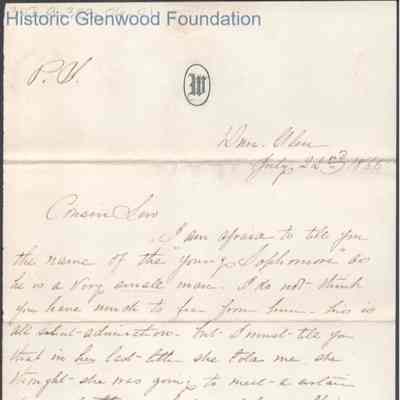 Historic Glenwood Foundation
P.S.
W
July 22nd, 18
Cousin Lew
I am afraid to tell you
the name of the "young Sophomore" as
he is a very small man. I do not think
you have much to fear from him. his is
all silent admiration. but I must tell you
that in her last letter she told me she
thought she was going to meet a certain